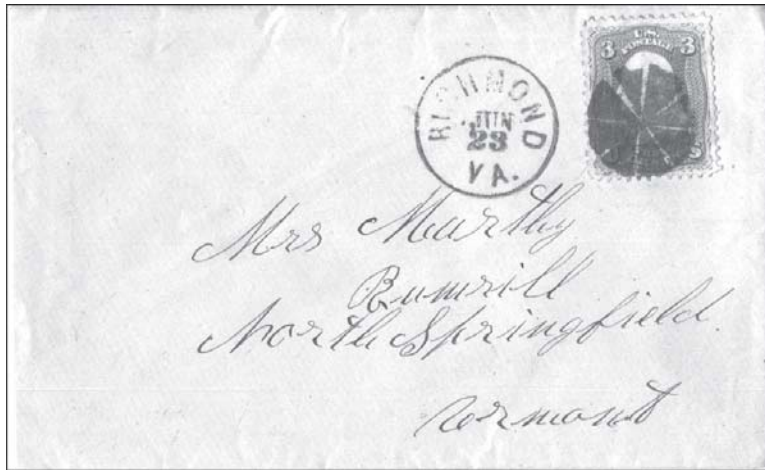 U.S.
POSTAGE
3 3
RICHMOND
JUN
23
VA.
Mrs Marthy
Rumrill
North Springfield.
Vermont